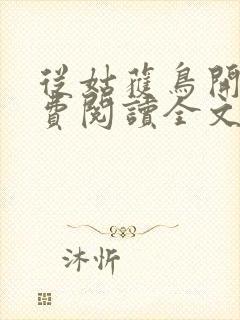 從姑蔭鳥開
費閱讀全文
沐忻